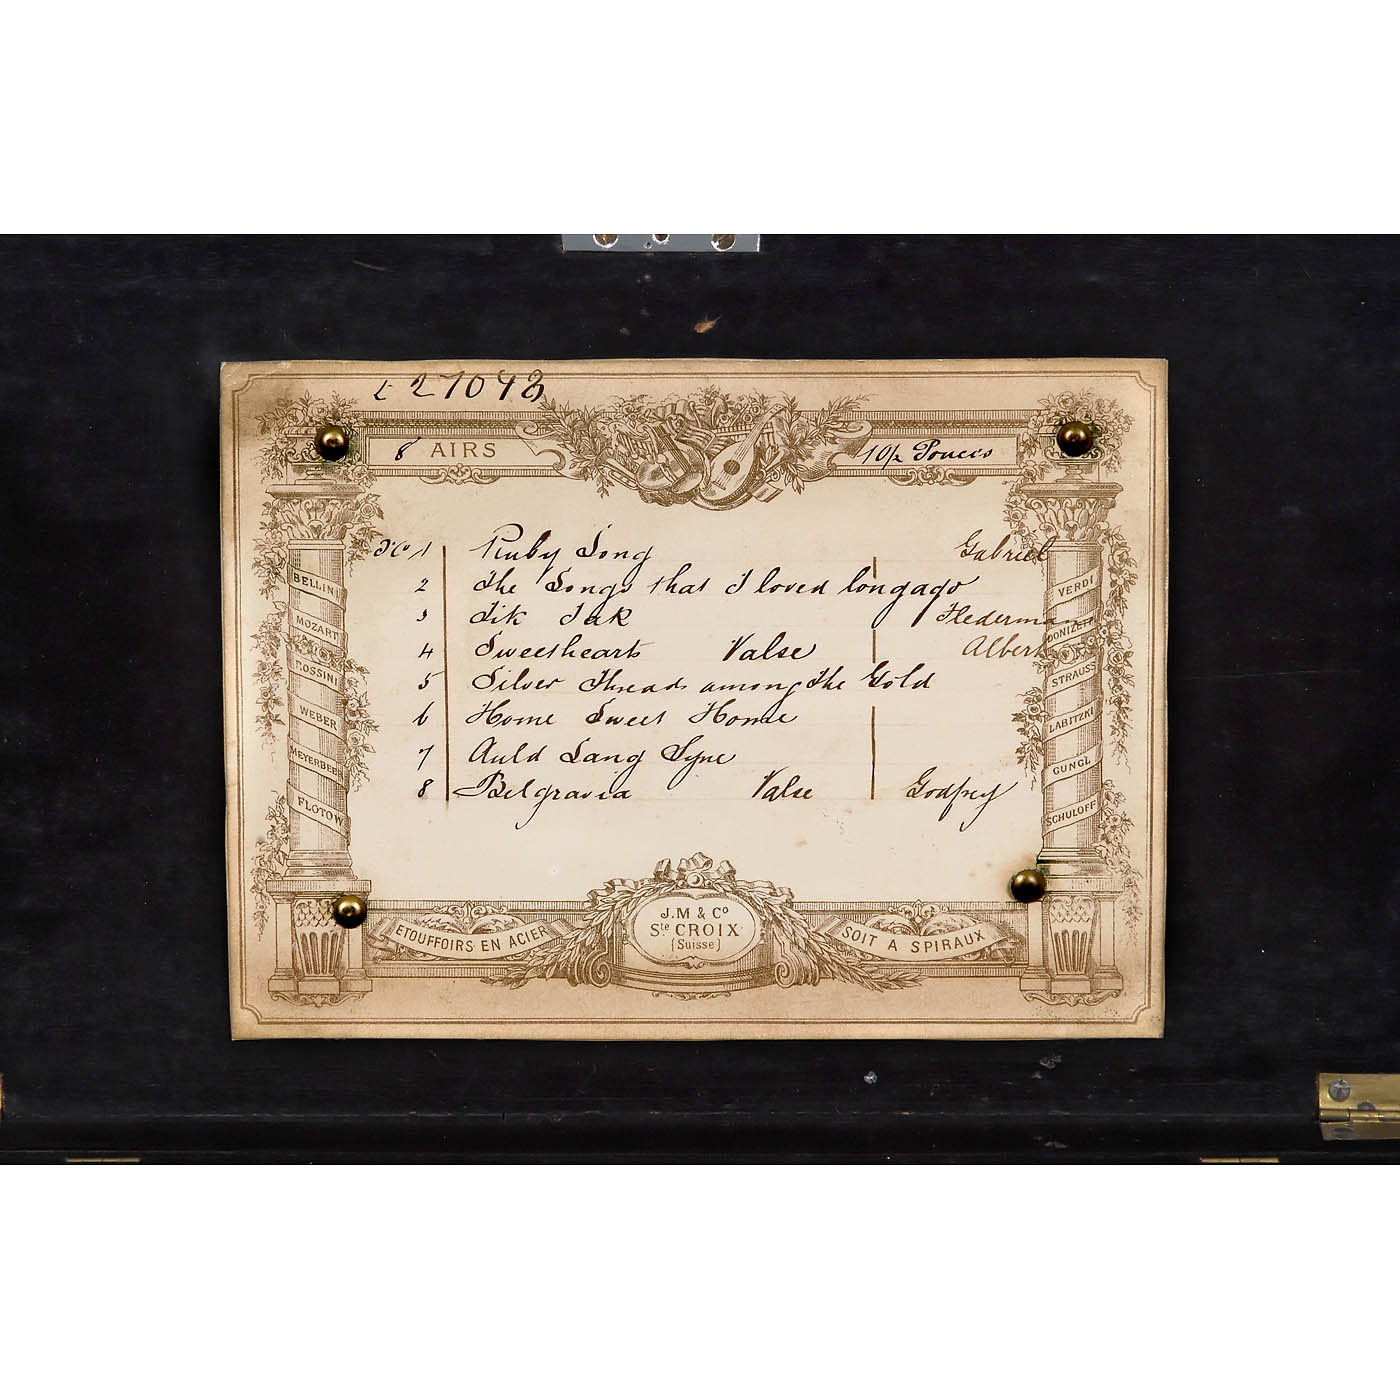 27043
8 AIRS 10½ Pouces
No 1 Ruby Song Gabriel
2 The Songs that I loved long ago
3 Tik Tak Flederman
4 Sweethearts Valse Albert
5 Silver Threads among the Gold
6 Home Sweet Home
7 Auld Lang Syne
8 Belgravia Valse Godfrey
BELLINI
MOZART
ROSSINI
WEBER
MEYERBEER
FLOTOW
VERDI
DONIZETTI
STRAUSS
LABITZKI
GUNGL
SCHULOFF
ETOUFFOIRS EN ACIER
J.M & Co
Ste CROIX
(Suisse)
SOIT A SPIRAUX